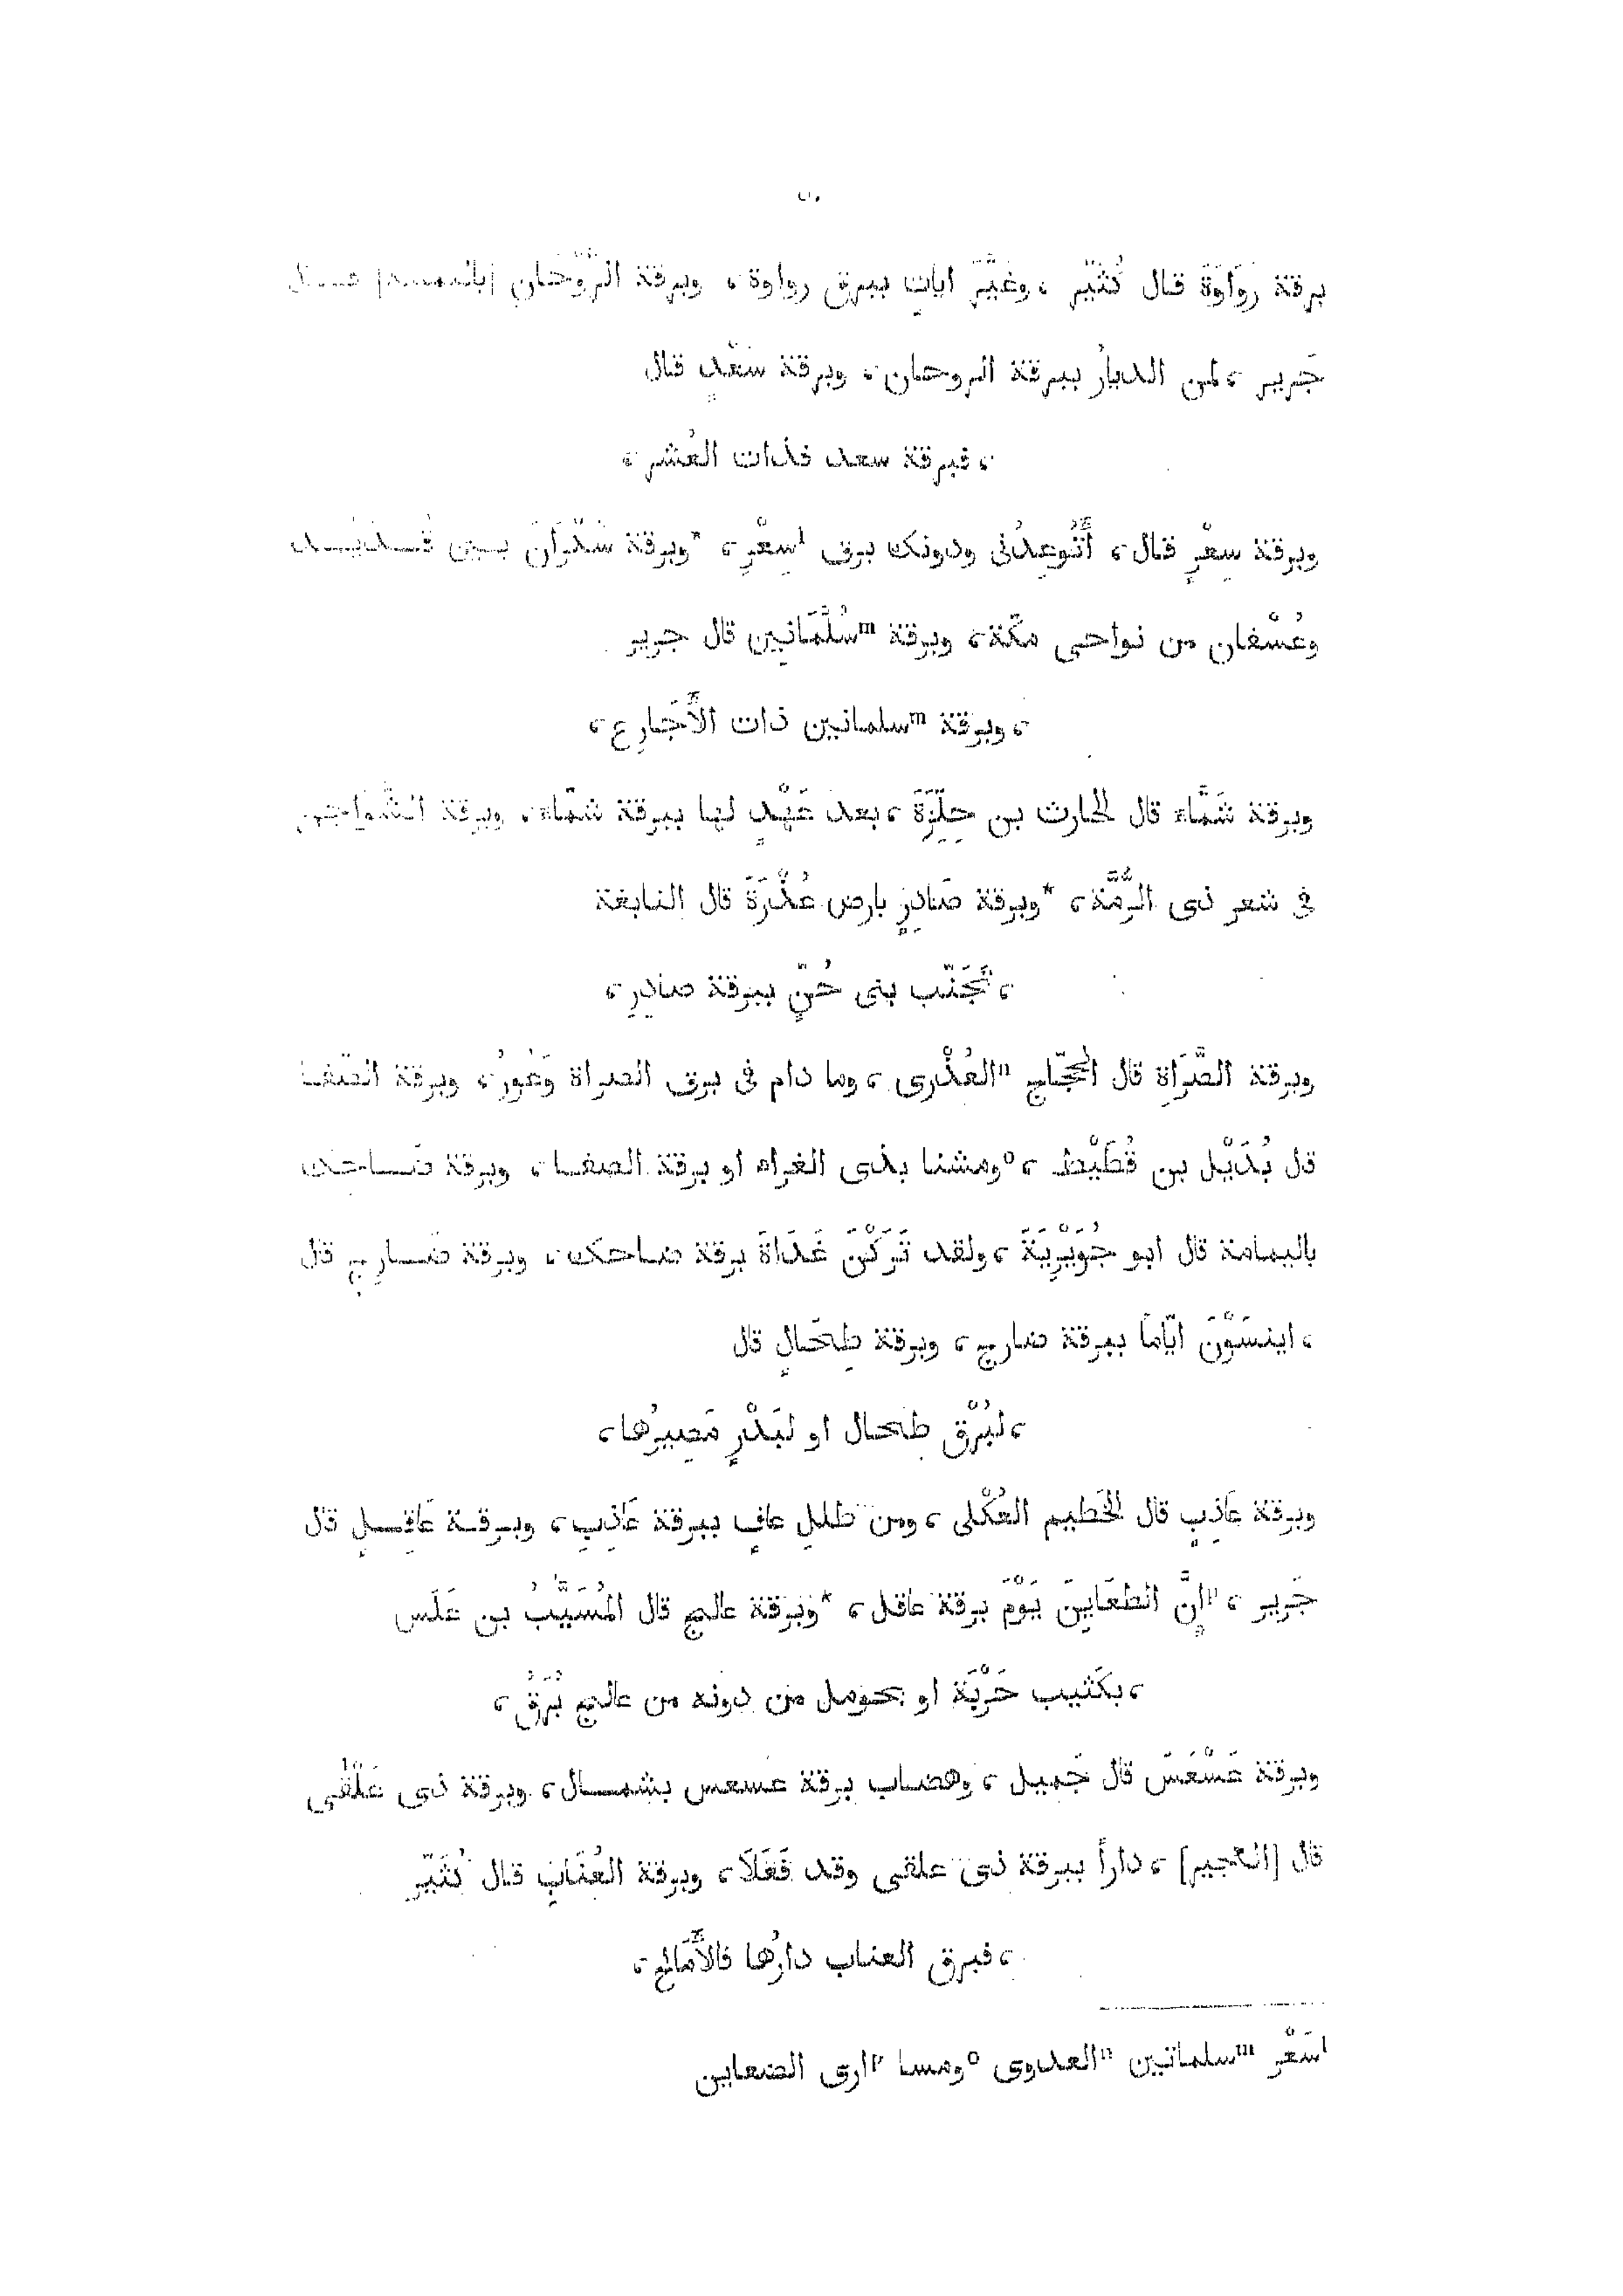 ٥٠
برقة رَوَاوَةَ قال كُثَيّر ،وغَيَّرَ ايات ببرق رواوة، وبرقة الرَّوْحَان [باليمامة] قال
جَرير ،لمن الديارُ ببرقة الروحان، وبرقة سَعْدٍ قال
،فبرقة سعد فذات العُشَر،
وبرقة سِعْرٍ قال، أَتُوعِدُنى ودونك برق ˡسِعْرٍ، *وبرقة سَكْرَانَ بين قُدَيْد
وعُسْفان من نواحى مكّة، وبرقة ᵐسُلْمَانَيِن قال جرير
،وبرقة ᵐسلمانين ذات الأَجَارِع،
وبرقة شَمَّاءَ قال الحارث بن حِلِّزَةَ ،بعد عَهْدٍ لها ببرقة شمّاء، وبرقة الشَّوَاجِن
فى شعر ذى الرُّمَّة، *وبرقة صَادِرٍ بارض عُذْرَةَ قال النابغة
،تَجَنَّب بنى حُنٍّ ببرقة صَادِرِ،
وبرقة الصَّرَاةِ قال الحَجّاج ⁿالعُذْرى ،وما دام فى برق الصراة وَعُورُ، وبرقة الصَّفا
قال بُدَيْل بن قُطَيْط ،ᵒومشتا بذى الغراء او برقة الصفا، وبرقة ضَاحك
باليمامة قال ابو جُوَيْرِيَةَ ،ولقد تَرَكْنَ غَدَاةَ برقة ضاحك، وبرقة ضَارِج قال
،اينسَوْنَ ايّامًا ببرقة ضارج، وبرقة طِحَالٍ قال
،لبُرْق طحال او لبَدْرٍ مَصِيرُها،
وبرقة عَاذِبٍ قال الخَطيم العُكْلى ،ومن طللٍ عافٍ ببرقة عَاذِبِ، وبرقة عَاقِلٍ قال
جَرير ،ᵖإنَّ الظعَايِنَ يَوْمَ برقة عاقل، *وبرقة عالج قال المُسَيَّبُ بن عَلَس
،بكَثيب حَرْبَةَ او بحَومل من دونه من عالج بُرَقُ،
وبرقة عَسْعَسَ قال جَميل ،وهضاب برقة عسعس بشمال، وبرقة ذى عَلْقَى
قال [العجير] ،داراً ببرقة ذى علقى وقد قَفَلَا، وبرقة العُنَابِ قال كُثَيّر
،فبرق العناب دارُها فالأَمَالح،
ˡسَعْر ᵐسلماتين ⁿالعدوى ᵒومسا ᵖارى الضعاين